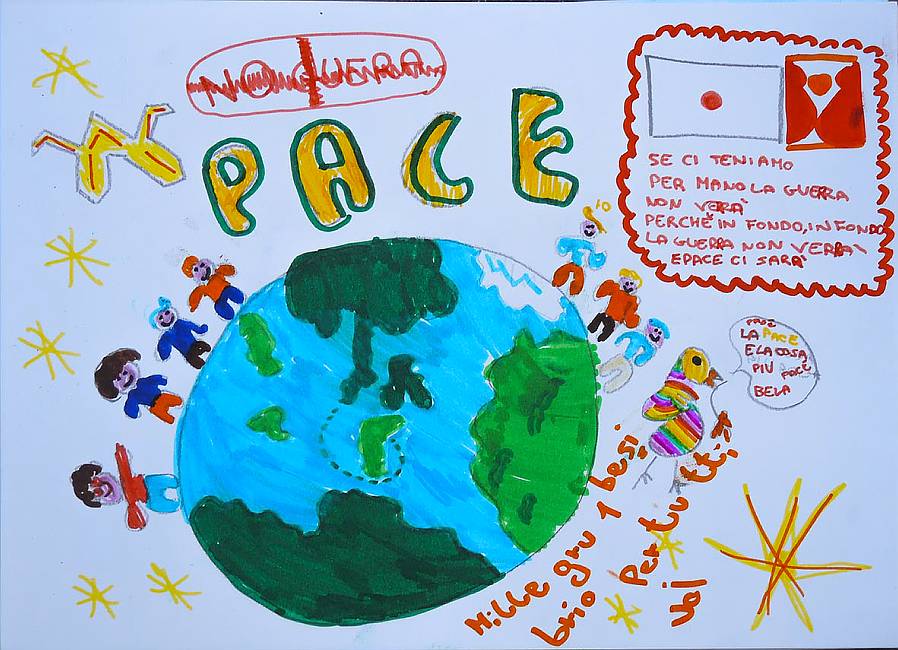 NO GUERRA
PACE
SE CI TENIAMO
PER MANO LA GUERRA
NON VERÀ
PERCHÈ IN FONDO, IN FONDO
LA GUERRA NON VERRÀ
E PACE CI SARÀ
PACE
LA PACE
E LA COSA
PIÙ PACE
BELA
Mille gru 1 besi
brio Per tutti
voi